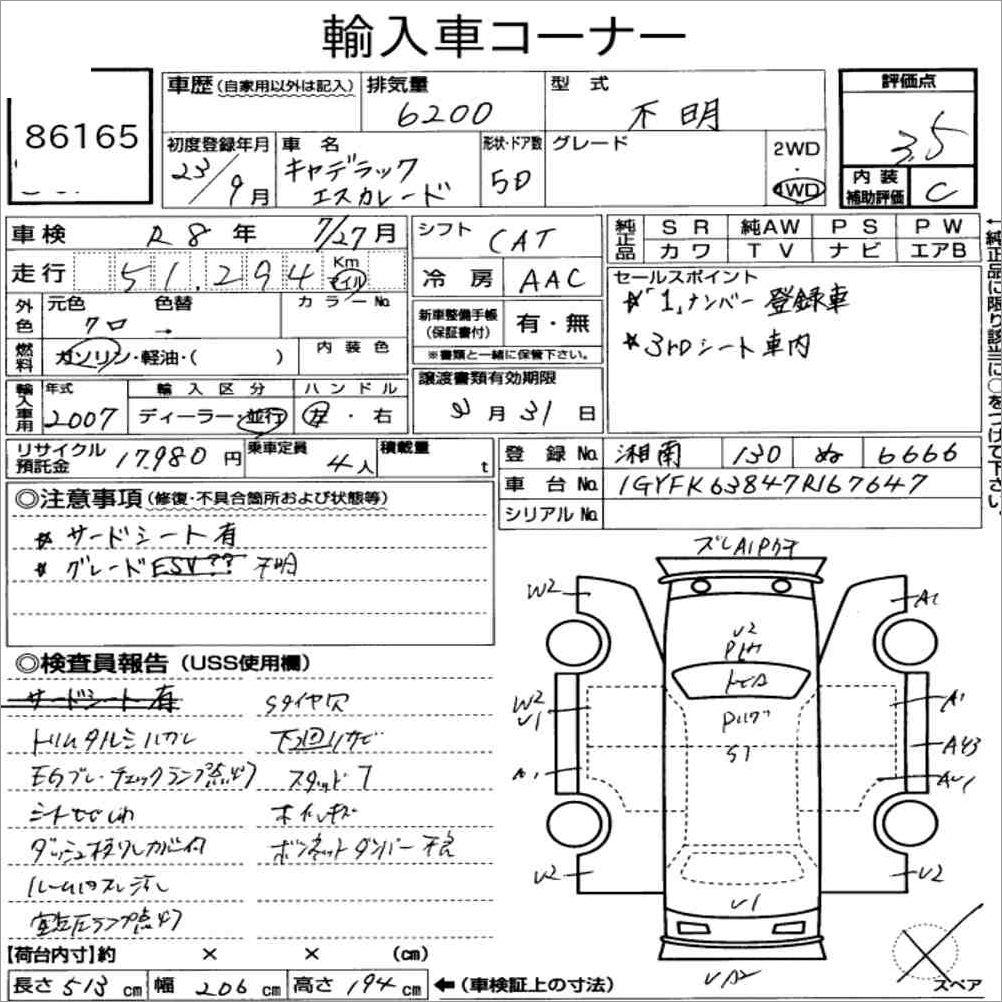 輸入車コーナー
86165
車歴 (自家用以外は記入)
排気量 6200
型式 不明
評価点 3.5
初度登録年月 23/9月
車名 キャデラック エスカレード
形状・ドア数 5D
グレード
2WD
4WD
内装補助評価 C
車検 R8年 7/27月
シフト CAT
純正品 SR 純AW PS PW
カワ TV ナビ エアB
走行 51,294 Km マイル
冷房 AAC
セールスポイント
☆「1」ナンバー登録車
☆3rdシート車内
外色 元色 クロ 色替 → カラーNo.
新車整備手帳(保証書付) 有・無
※書類と一緒に保管下さい。
燃料 ガソリン・軽油・( ) 内装色
譲渡書類有効期限
月31日
輸入車用 年式 2007 輸入区分 ディーラー・並行 ハンドル 左・右
←純正品に限り該当に○をつけて下さい。
リサイクル預託金 17,980円
乗車定員 4人
積載量 t
登録No. 湘南 130 ぬ 6666
車台No. 1GYFK63847R167647
シリアルNo.
◎注意事項 (修復・不具合箇所および状態等)
☆サードシート有
☆グレードESV?? 不明
ズレA1Pワレ
W2
A1
U2
◎検査員報告 (USS使用欄)
サードシート有
Sタイヤ欠
下回りサビ
スタッド7
ダッシュ
ボンネットダンパー不良
空気圧ランプ点灯
W2
U1
A1
S1
U2
U1
U2
【荷台内寸】約 × × (cm)
長さ 513 cm 幅 206 cm 高さ 194 cm ←(車検証上の寸法)
スペア